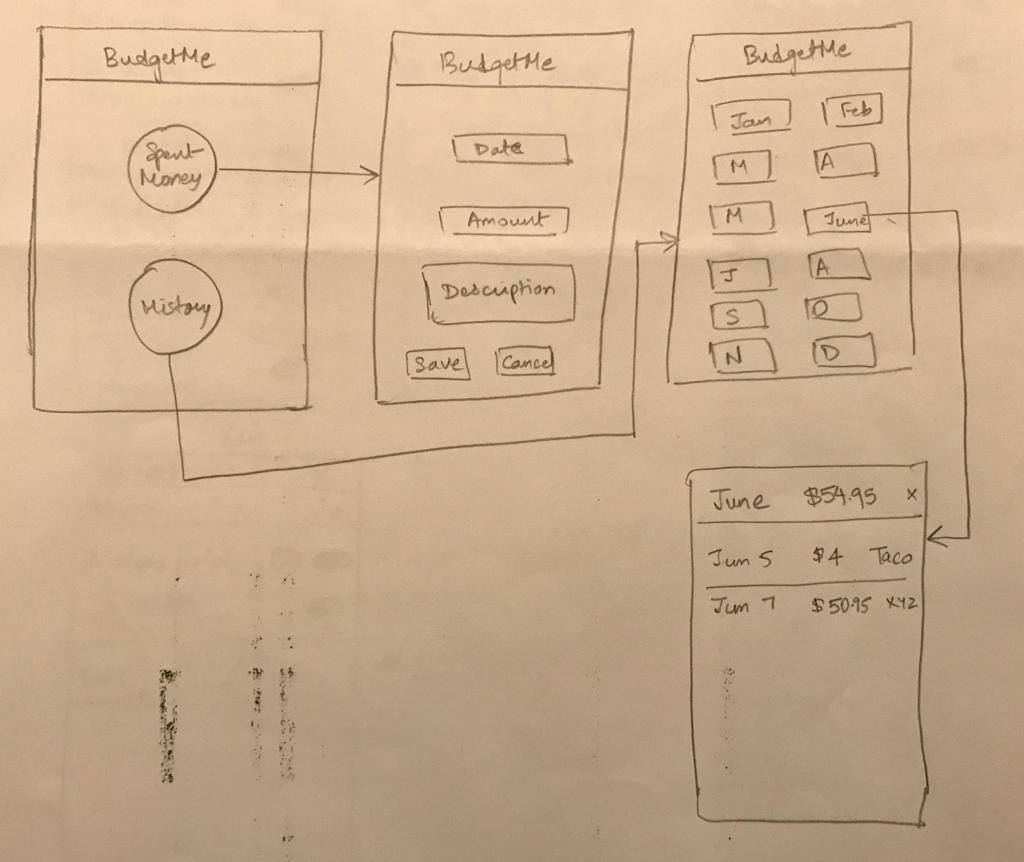 BudgetMe
Spent
Money
History
BudgetMe
Date
Amount
Description
Save Cancel
BudgetMe
Jan Feb
M A
M June
J A
S O
N D
June $54.95 x
Jun 5 $4 Taco
Jun 7 $50.95 XYZ